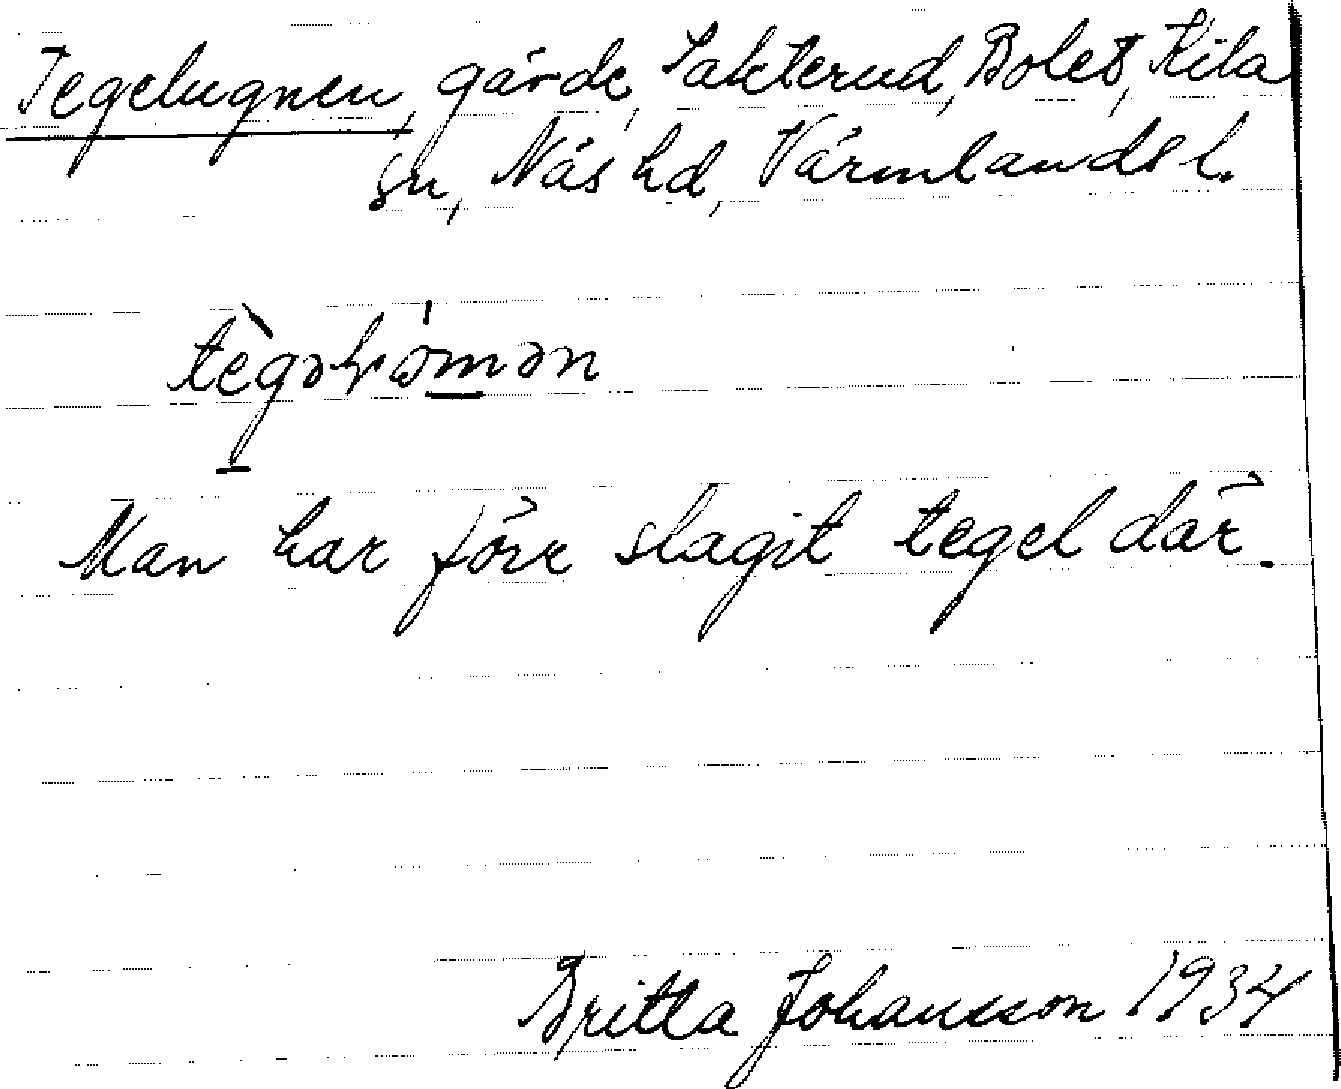 Tegelugnen, gärde, Takterud, Bolet, Kila
sn, Näs hd, Värmlands l.
Man har förr slagit tegel där.
Britta Johansson 1934